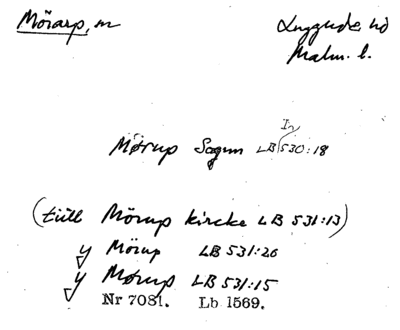 Mörarp, sn Luggude hd
Malm. l.
Mørup Sogun LB 530:18
In
(till Mörup kircke LB 531:13)
y Mörup LB 531:26
y Mørup LB 531:15
Nr 7081. Lb 1569.